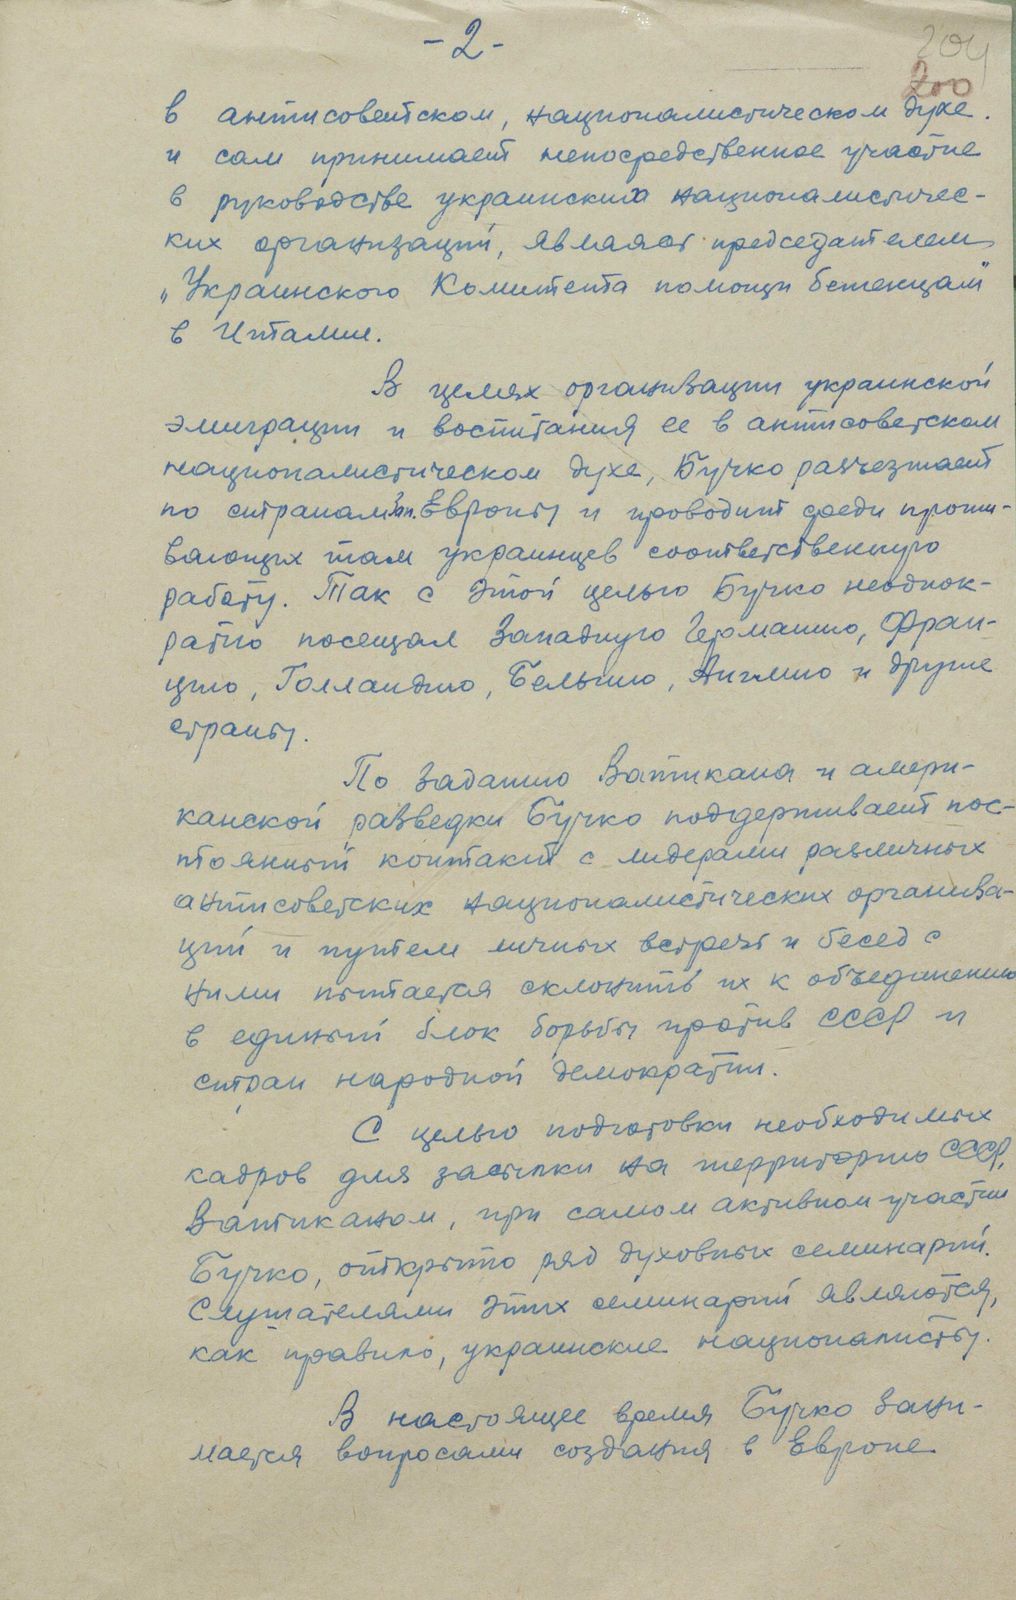 - 2 -
204
200
в антисоветском, националистическом духе.
и сам принимает непосредственное участие
в руководстве украинских националистичес-
ких организаций, являясь председателем
"Украинского Комитета помощи беженцам"
в Италии.
В целях организации украинской
эмиграции и воспитания ее в антисоветском
националистическом духе, Бучко разъезжает
по странам Зап. Европы и проводит среди прожи-
вающих там украинцев соответственную
работу. Так с этой целью Бучко неоднок-
ратно посещал Западную Германию, Фран-
цию, Голландию, Бельгию, Англию и другие
страны.
По заданию Ватикана и амери-
канской разведки Бучко поддерживает пос-
тоянный контакт с лидерами различных
антисоветских националистических организа-
ций и путем личных встреч и бесед с
ними пытается склонить их к объединению
в единый блок борьбы против СССР и
стран народной демократии.
С целью подготовки необходимых
кадров для засылки на территорию СССР,
Ватиканом, при самом активном участии
Бучко, открыто ряд духовных семинарий.
Слушателями этих семинарий являются,
как правило, украинские националисты.
В настоящее время Бучко зани-
мается вопросами создания в Европе